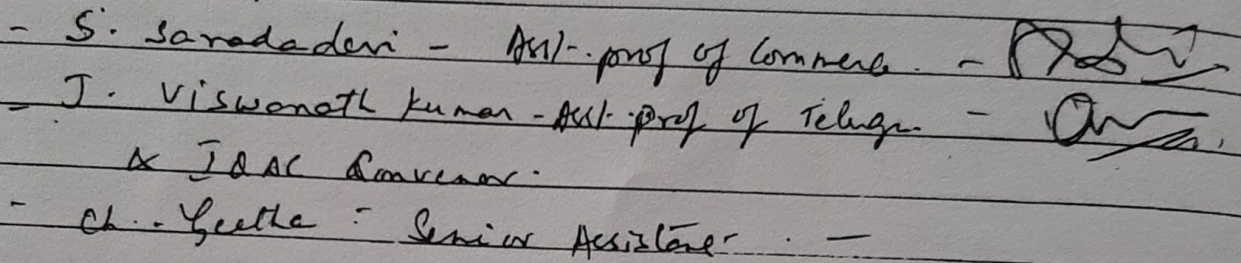 - S. Saradadevi - Asst. prof of Commerce. -
- J. Viswanath Kumar - Asst. prof of Telugu -
& IQAC Convenor.
- Ch. Geetha - Senior Assistant. -